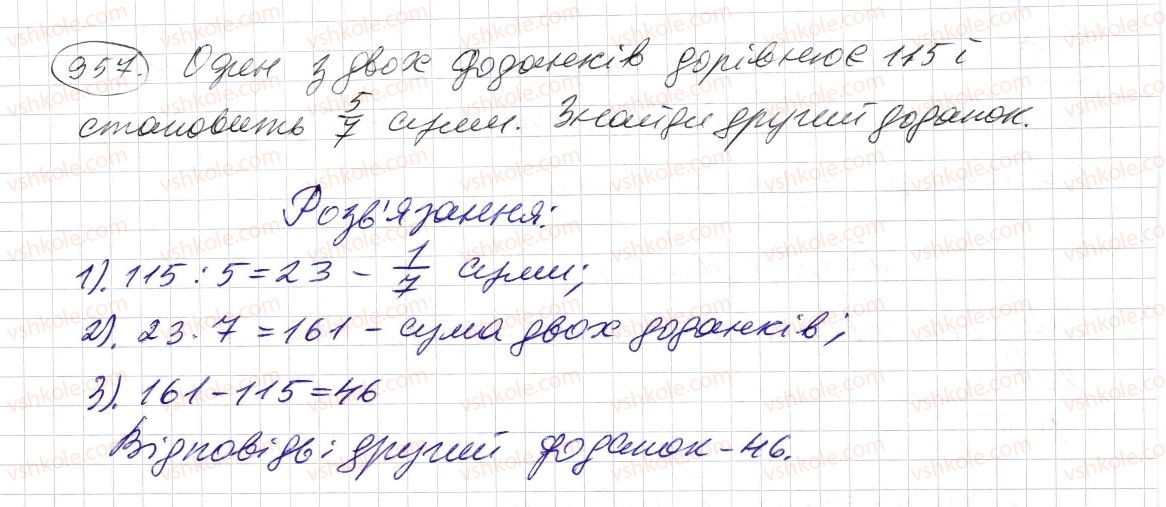 957. Один з двох доданків дорівнює 115 і
становить 5/7 суми. Знайди другий доданок.
Розв'язання:
1). 115 : 5 = 23 - 1/7 суми;
2). 23 · 7 = 161 - сума двох доданків;
3). 161 - 115 = 46
Відповідь: другий доданок - 46.